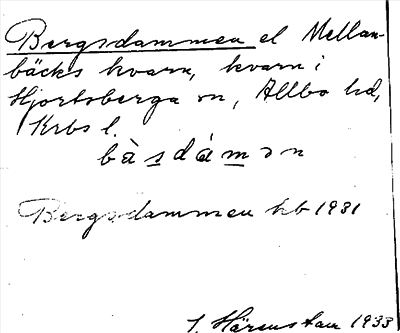 Bergsdammen el Mellan-
bäcks kvarn, kvarn i
Hjortsberga sn, Allbo hd,
Krbs l.
bàsdámən
Bergsdammen kb 1931
1933